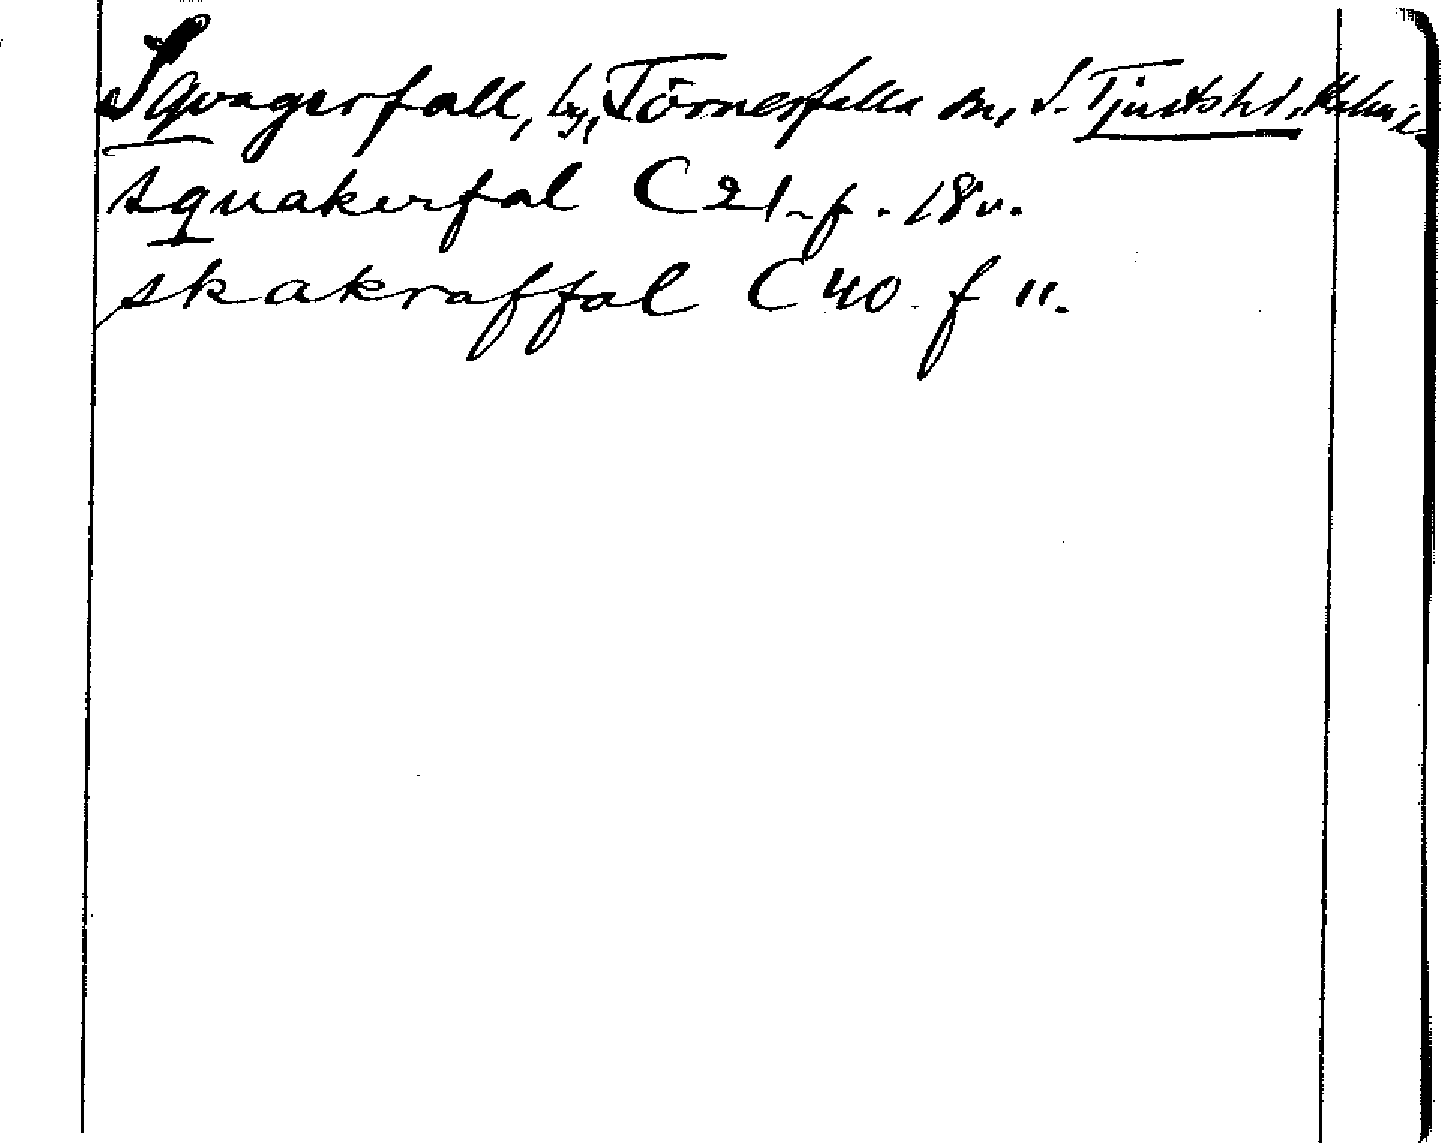 Sqvagerfall, by, Törnesfalla sn, S. Tjusts hd, Kalm.
squakerfal C 21 f. 18 v.
skakraffal C 40 f 11.